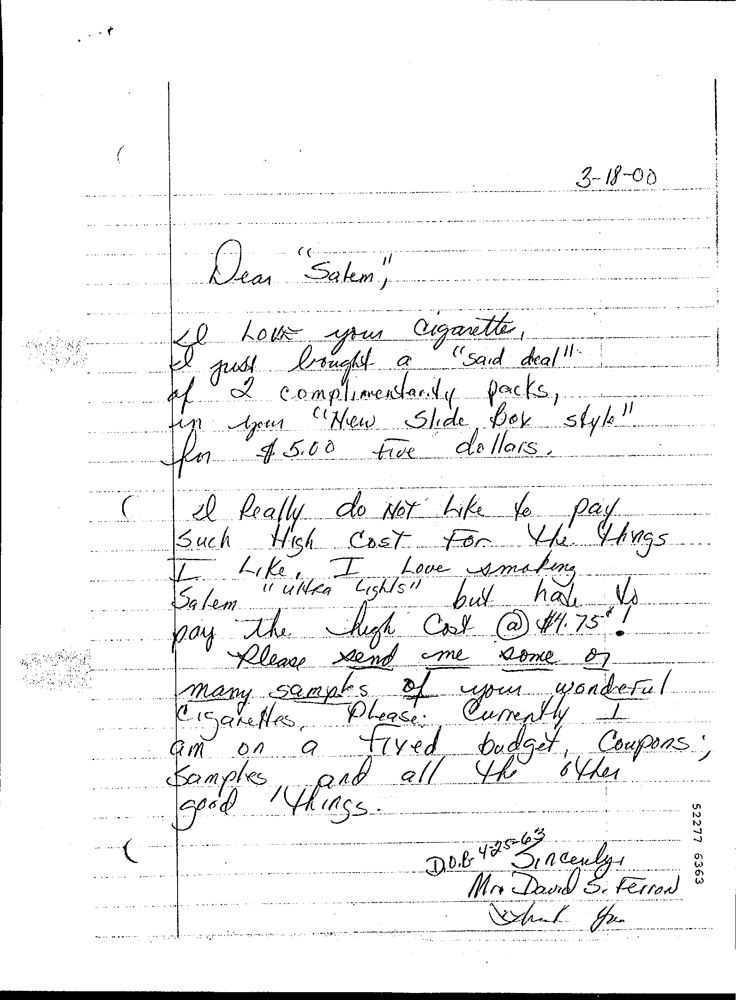 3-18-00
Dear "Salem",
I Love your Cigarettes,
I just bought a "said deal"
of 2 complimentarity packs,
in your "New Slide Box style"
for $5.00 Five dollars.
I Really do NOT Like to pay
Such High Cost For the things
I Like, I Love smoking
Salem "ultra Lights" but hate to
pay the high Cost @ $4.75!
Please send me some or
many samples of your wonderful
Cigarettes, Please: Currently I
am on a fixed budget, Coupons;
Samples and all the other
good things.
D.O.B 4-25-63 Sincerely,
David S. Ferron
Thank You
52277 6363